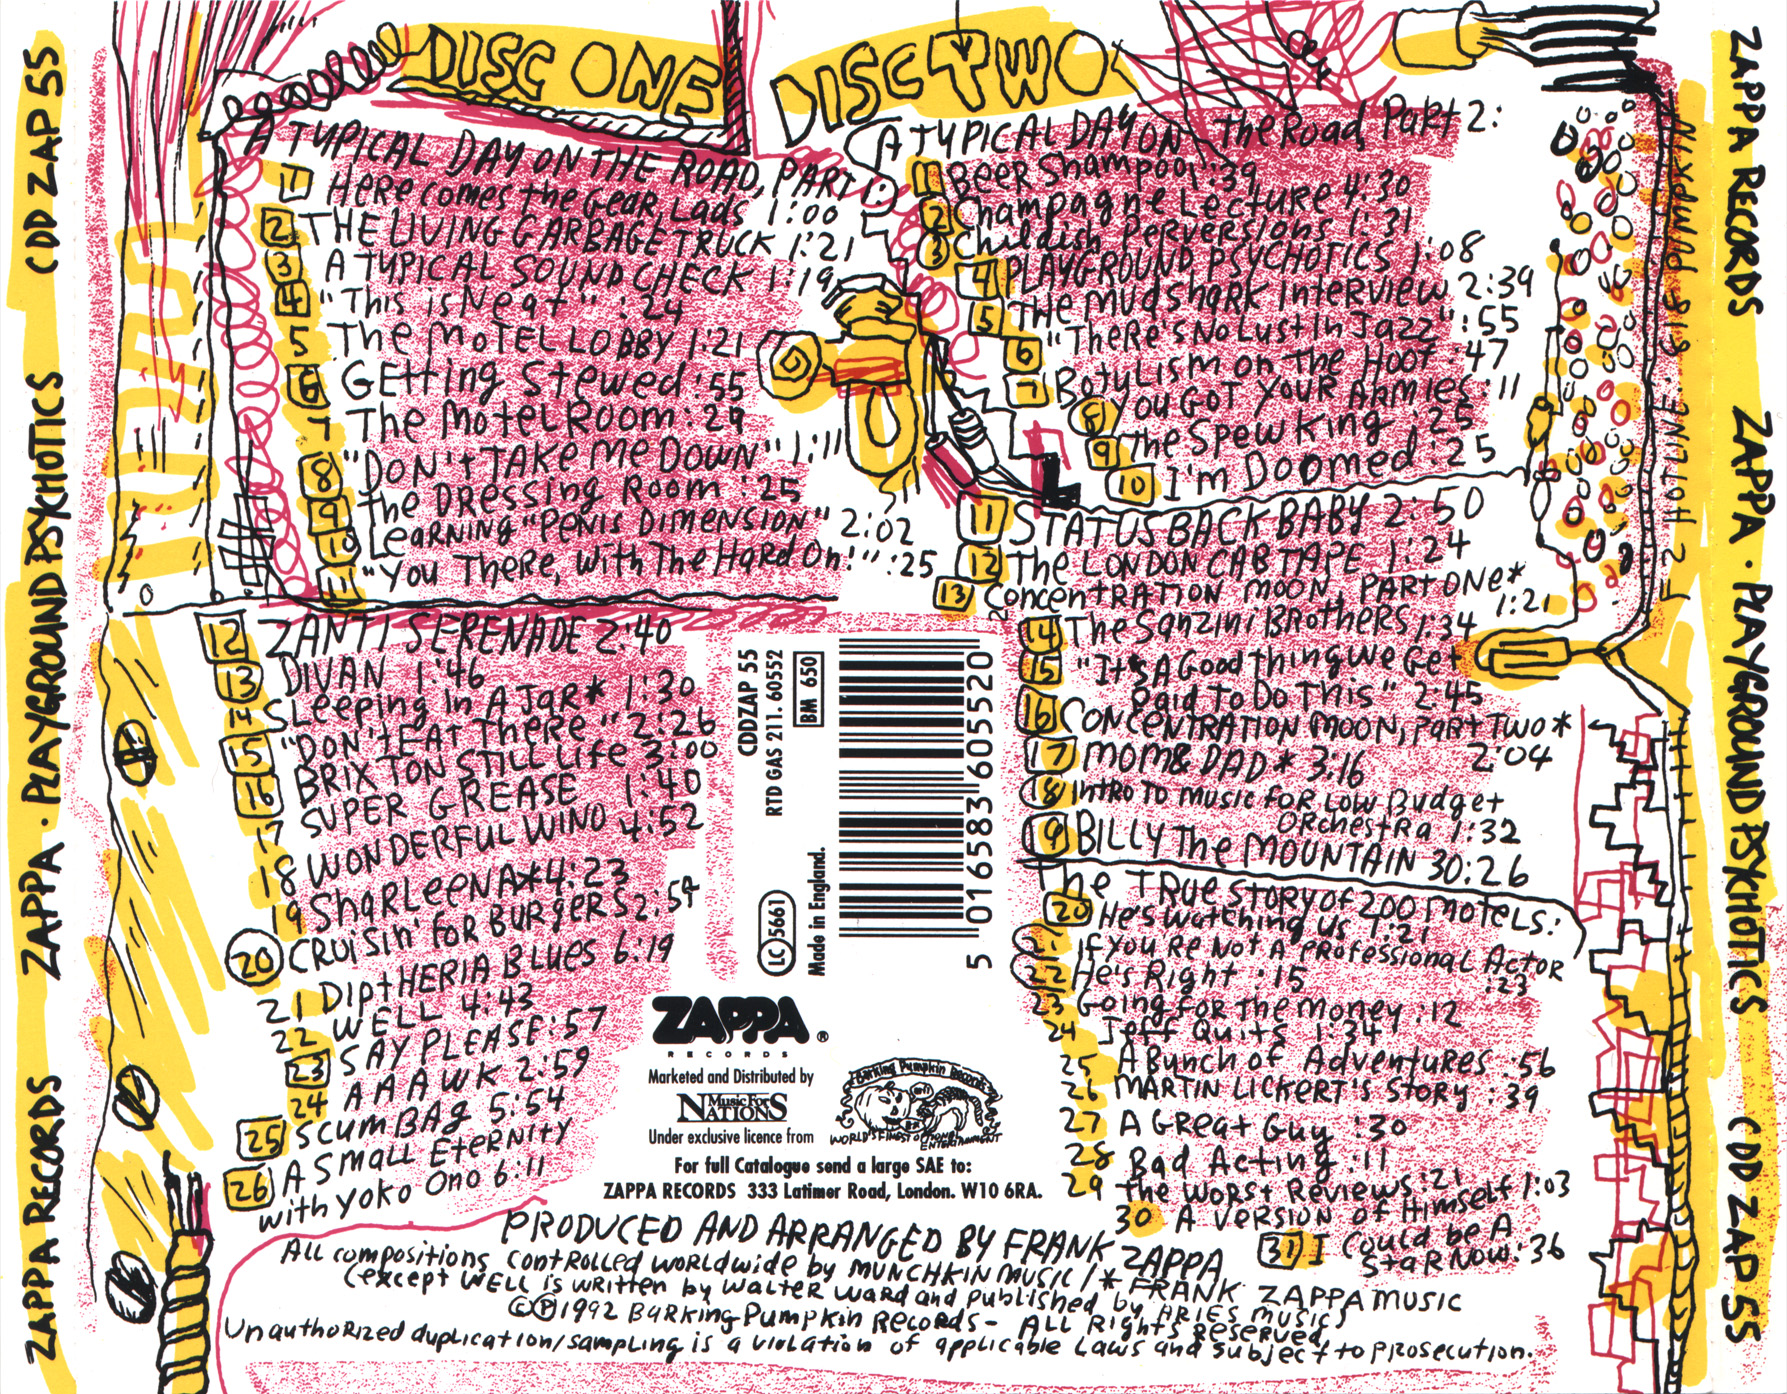 DISC ONE
A TYPICAL DAY ON THE ROAD, PART 1:
1 Here comes the Gear, Lads 1:00
2 THE LIVING GARBAGE TRUCK 1:21
3 A TYPICAL SOUND CHECK 1:19
4 "This is Neat" :24
5 The MOTEL LOBBY 1:21
6 Getting Stewed :55
7 The Motel Room :29
8 "DON't TAKE Me DOWN" 1:11
9 the DRessing Room :25
10 LeaRNING "PeNIS DIMENSION" 2:02
11 "You There, with The Hard On!" :25
12 ZANTI SERENADE 2:40
13 DIVAN 1:46
14 Sleeping In A Jar* 1:30
15 "DON'T EAT There" 2:26
16 BRIXTON STILL Life 3:00
17 SUPER GREASE 1:40
18 WONDERFUL WINO 4:52
19 SharleeNA* 4:23
20 CRUISIN' FOR BURgERS 2:54
21 DIptHERIA BLues 6:19
22 WELL 4:43
23 SAY PLEASE :57
24 AAAWK 2:59
25 SCUMBAg 5:54
26 A Small Eternity
with Yoko Ono 6:11
DISC TWO
A TYPICAL DAY ON The Road, Part 2:
1 Beer Shampoo :39
2 Champagne Lecture 4:30
3 Childish Perversions 1:31
4 PLAYGROUND PSYCHOTICS 1:08
5 THE MUDSHARK INTERVIEW 2:39
6 "There's No Lust In Jazz" :55
7 Botulism on the Hoof :47
8 YOU GOT YOUR ARMIES :11
9 The Spew King :25
10 I'm Doomed :25
11 STATUS BACK BABY 2:50
12 The LONDON CAB TAPE 1:24
13 ConcenTRATION MOON, PART ONe*
1:21
14 The Sanzini Brothers 1:34
15 "It's A Good Thing We Get
Paid To Do This" 2:45
16 CONCENTRATION MOON, Part Two*
2:04
17 MOM & DAD* 3:16
18 INtRo TO Music FoR Low Budget
ORchestRa 1:32
19 BILLY The MOUNTAIN 30:26
The TRUE STORY OF 200 MOTELS:
20 He's Watching Us 1:21
21 If You're Not A Professional Actor
:23
22 He's Right :15
23 Going for The Money :12
24 Jeff Quits 1:34
25 A Bunch of Adventures :56
26 MARTIN LICKERT'S STORY :39
27 A GReat Guy :30
28 Bad Acting :11
29 The Worst Reviews :21
30 A Version of Himself 1:03
31 I Could be A
Star Now :36
CDDZAP 55
RTD GAS 211. 60552
BM 650
LC 5661
Made in England.
5 016583 605520
ZAPPA ®
RECORDS
Marketed and Distributed by
Music For
NATIONS
Under exclusive licence from
Barking Pumpkin Records
WORLD'S FINEST OPTIONAL
ENTERTAINMENT
For full Catalogue send a large SAE to:
ZAPPA RECORDS 333 Latimer Road, London. W10 6RA.
PRODUCED AND ARRANGED BY FRANK ZAPPA
All compositions controlled worldwide by MUNCHKIN MUSIC / * FRANK ZAPPA MUSIC
(except WELL is written by Walter Ward and published by ARIES music)
© ℗ 1992 Barking Pumpkin Records - ALL Rights Reserved.
Unauthorized duplication/sampling is a violation of applicable Laws and subject to prosecution.
ZAPPA RECORDS ZAPPA · PLAYGROUND PSYCHOTICS CDD ZAP 55
ZAPPA RECORDS ZAPPA · PLAYGROUND PSYCHOTICS CDD ZAP 55